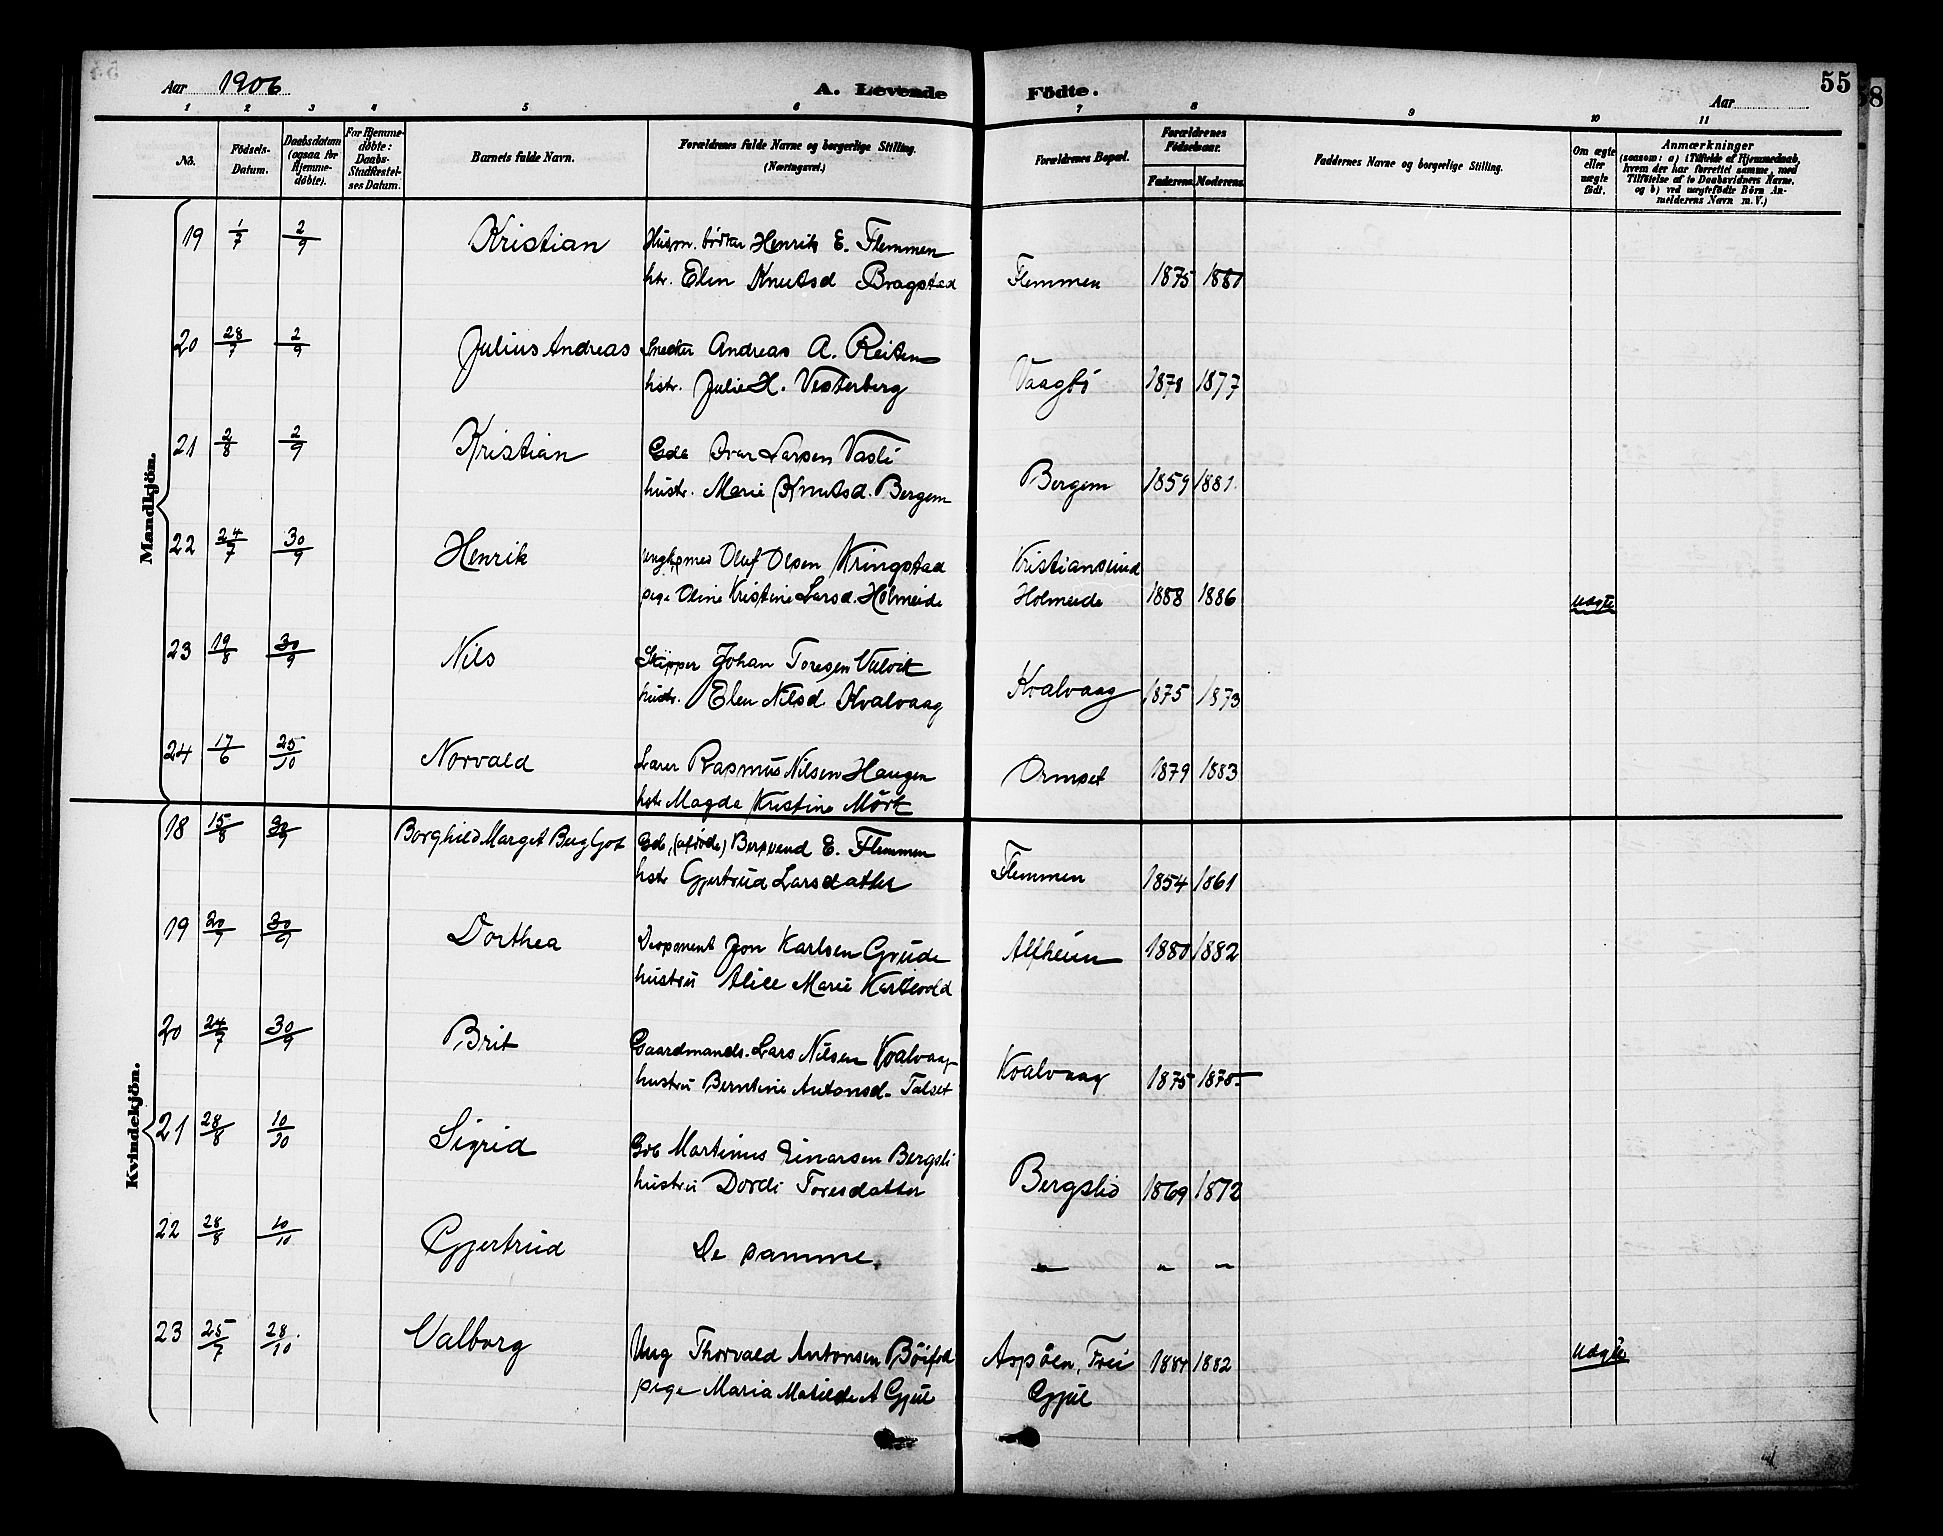 54
Aar 1906 A. Levende Födte. Aar 55
58
1 2 3 4 5 6 7 8 9 10 11
No. Födsels-Datum. Daabsdatum (ogsaa for Hjemme-döbte). For Hjemme-döbte: Daabs-Stadfæstel-ses Datum. Barnets fulde Navn. Forældrenes fulde Navne og borgerlige Stilling. (Næringsvei.) Forældrenes Bopæl. Forældrenes Födselsaar. Faderens. Moderens. Faddernes Navne og borgerlige Stilling. Om ægte eller uægte födt. Anmærkninger (saasom: a) i Tilfælde af Hjemmedaab, hvem der har forrettet samme, med Tilföielse af to Daabsvidners Navne, og b) ved uægtefödte Börn An-melderens Navn m. V.)
Mandkjön.
19 1/7 2/9 Kristian Husm. bödker Henrik E. Flemmen
hstr. Elen Knutsd Bragstad Flemmen 1875 1880
20 28/7 2/9 Julius Andreas Snedker Andreas A. Reiten
hstr. Julie H. Vesterberg Vaagbö 1878 1877
21 2/8 2/9 Kristian Gde Ivar Larsen Vasli
hustr. Marie Knutsd. Bergem Bergem 1859 1881
22 24/7 30/9 Henrik Oluf Olsen Kringstad Kristiansund
pige Oline Kristine Larsd. Holmeide Holmeide 1888 1886 uægte
23 19/8 30/9 Nils Skipper Johan Toresen Vulvik
hustr. Elen Nilsd. Kvalvaag Kvalvaag 1875 1873
24 17/6 25/10 Norvald Lærer Rasmus Nilsen Haugen Ormset 1879 1883
hstr Magda Kristine Mörk
Kvindekjön.
18 15/8 30/9 Borghild Marget Bergljot Gde, Bersvend E. Flemmen
hstr Gjertrud Larsdatter Flemmen 1854 1861
19 20/7 30/9 Dorthea Disponent Jon Karlsen Grude Alfheim 1880 1882
hustru Alice Marie
20 24/7 30/9 Brit Gaardmands. Lars Nilsen Kvalvaag
hustru Berntine Antonsd. Talset Kvalvaag 1875 1870
21 28/8 10/10 Sigrid Gbr Martinus Einarsen Bergsli
hustru Dordi Toresdatter Bergslid 1869 1872
22 28/8 10/10 Gjertrud De samme. " " "
23 25/7 28/10 Valborg Ung Thorvald Antonsen Aspöen, Frei 1884 1882 uægte
pige Maria Matilde A Gjul Gjul